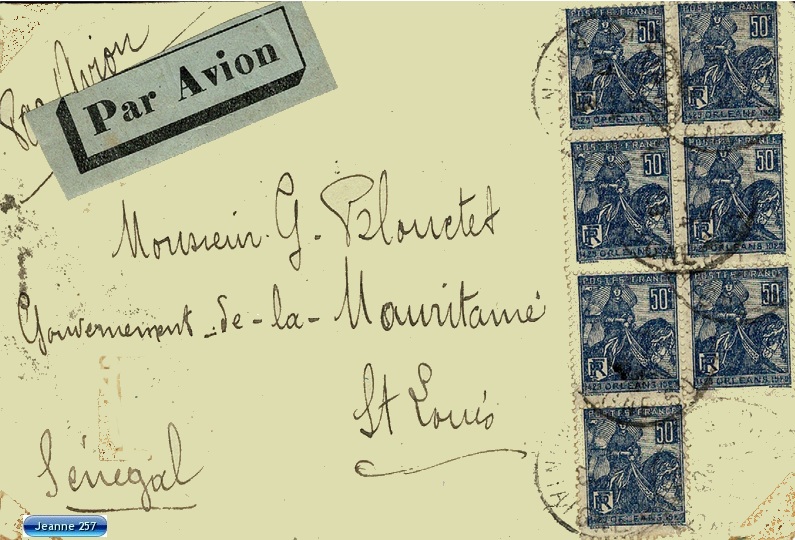 Par Avion
Par Avion
Monsieur G. Blouctet
Gouvernement-de-la-Mauritanie
St Louis
Sénégal
POSTES FRANCE
50c
RF
1429 ORLEANS 1929
POSTES FRANCE
50c
RF
1429 ORLEANS 1929
POSTES FRANCE
50c
RF
1429 ORLEANS 1929
POSTES FRANCE
50c
RF
1429 ORLEANS 1929
POSTES FRANCE
50c
RF
1429 ORLEANS 1929
POSTES FRANCE
50c
RF
1429 ORLEANS 1929
POSTES FRANCE
50c
RF
ORLEANS 1929
Jeanne 257